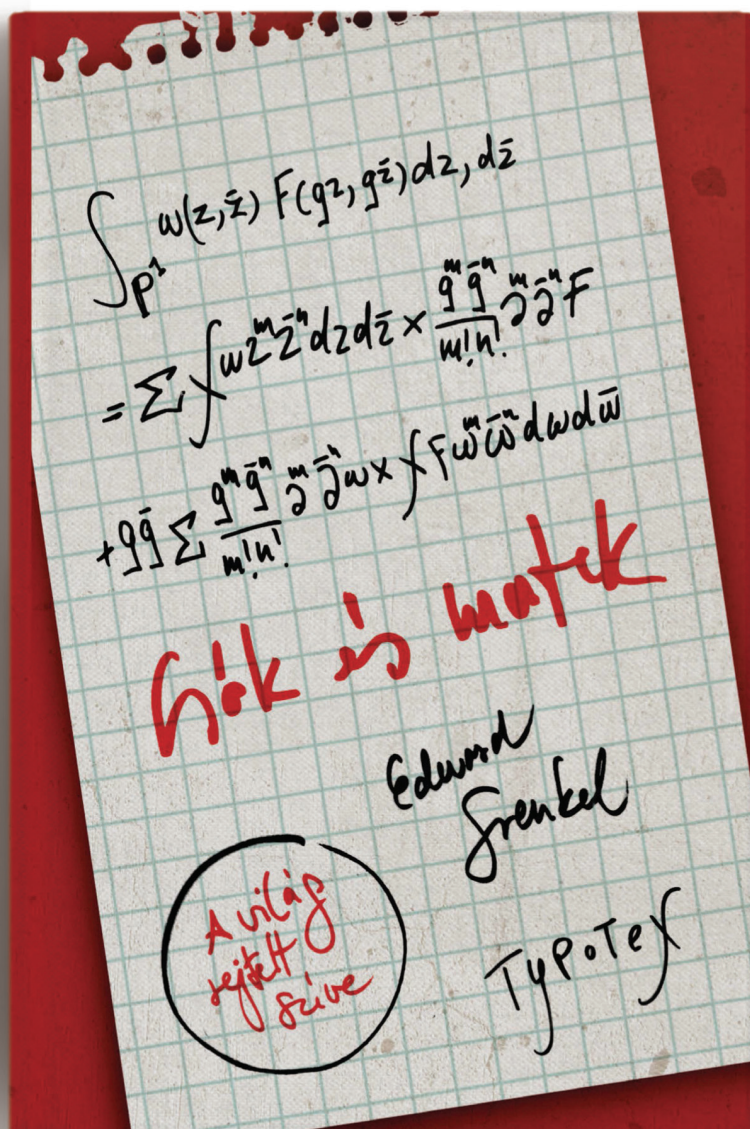 ∫_P¹ ω(z, z̄) F(qz, q̄z̄) dz, dz̄
= Σ ∫ ω zᵐ z̄ⁿ dz dz̄ × qᵐ q̄ⁿ / m! n! ∂ᵐ ∂̄ⁿ F
+ q q̄ Σ qᵐ q̄ⁿ / m! n! ∂ᵐ ∂̄ⁿ ω × ∫ F ωᵐ ω̄ⁿ dω dω̄
Csók és matek
Edward
Frenkel
A világ
rejtett
szíve
TypoTeX